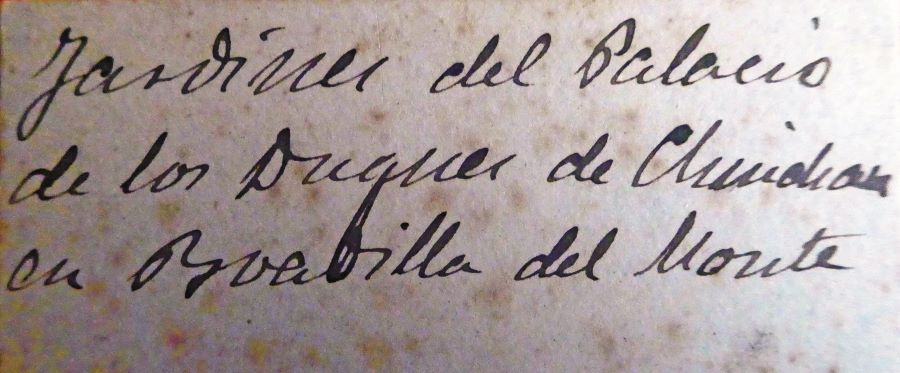 Jardines del Palacio
de los Duques de Chinchon
en Boadilla del Monte